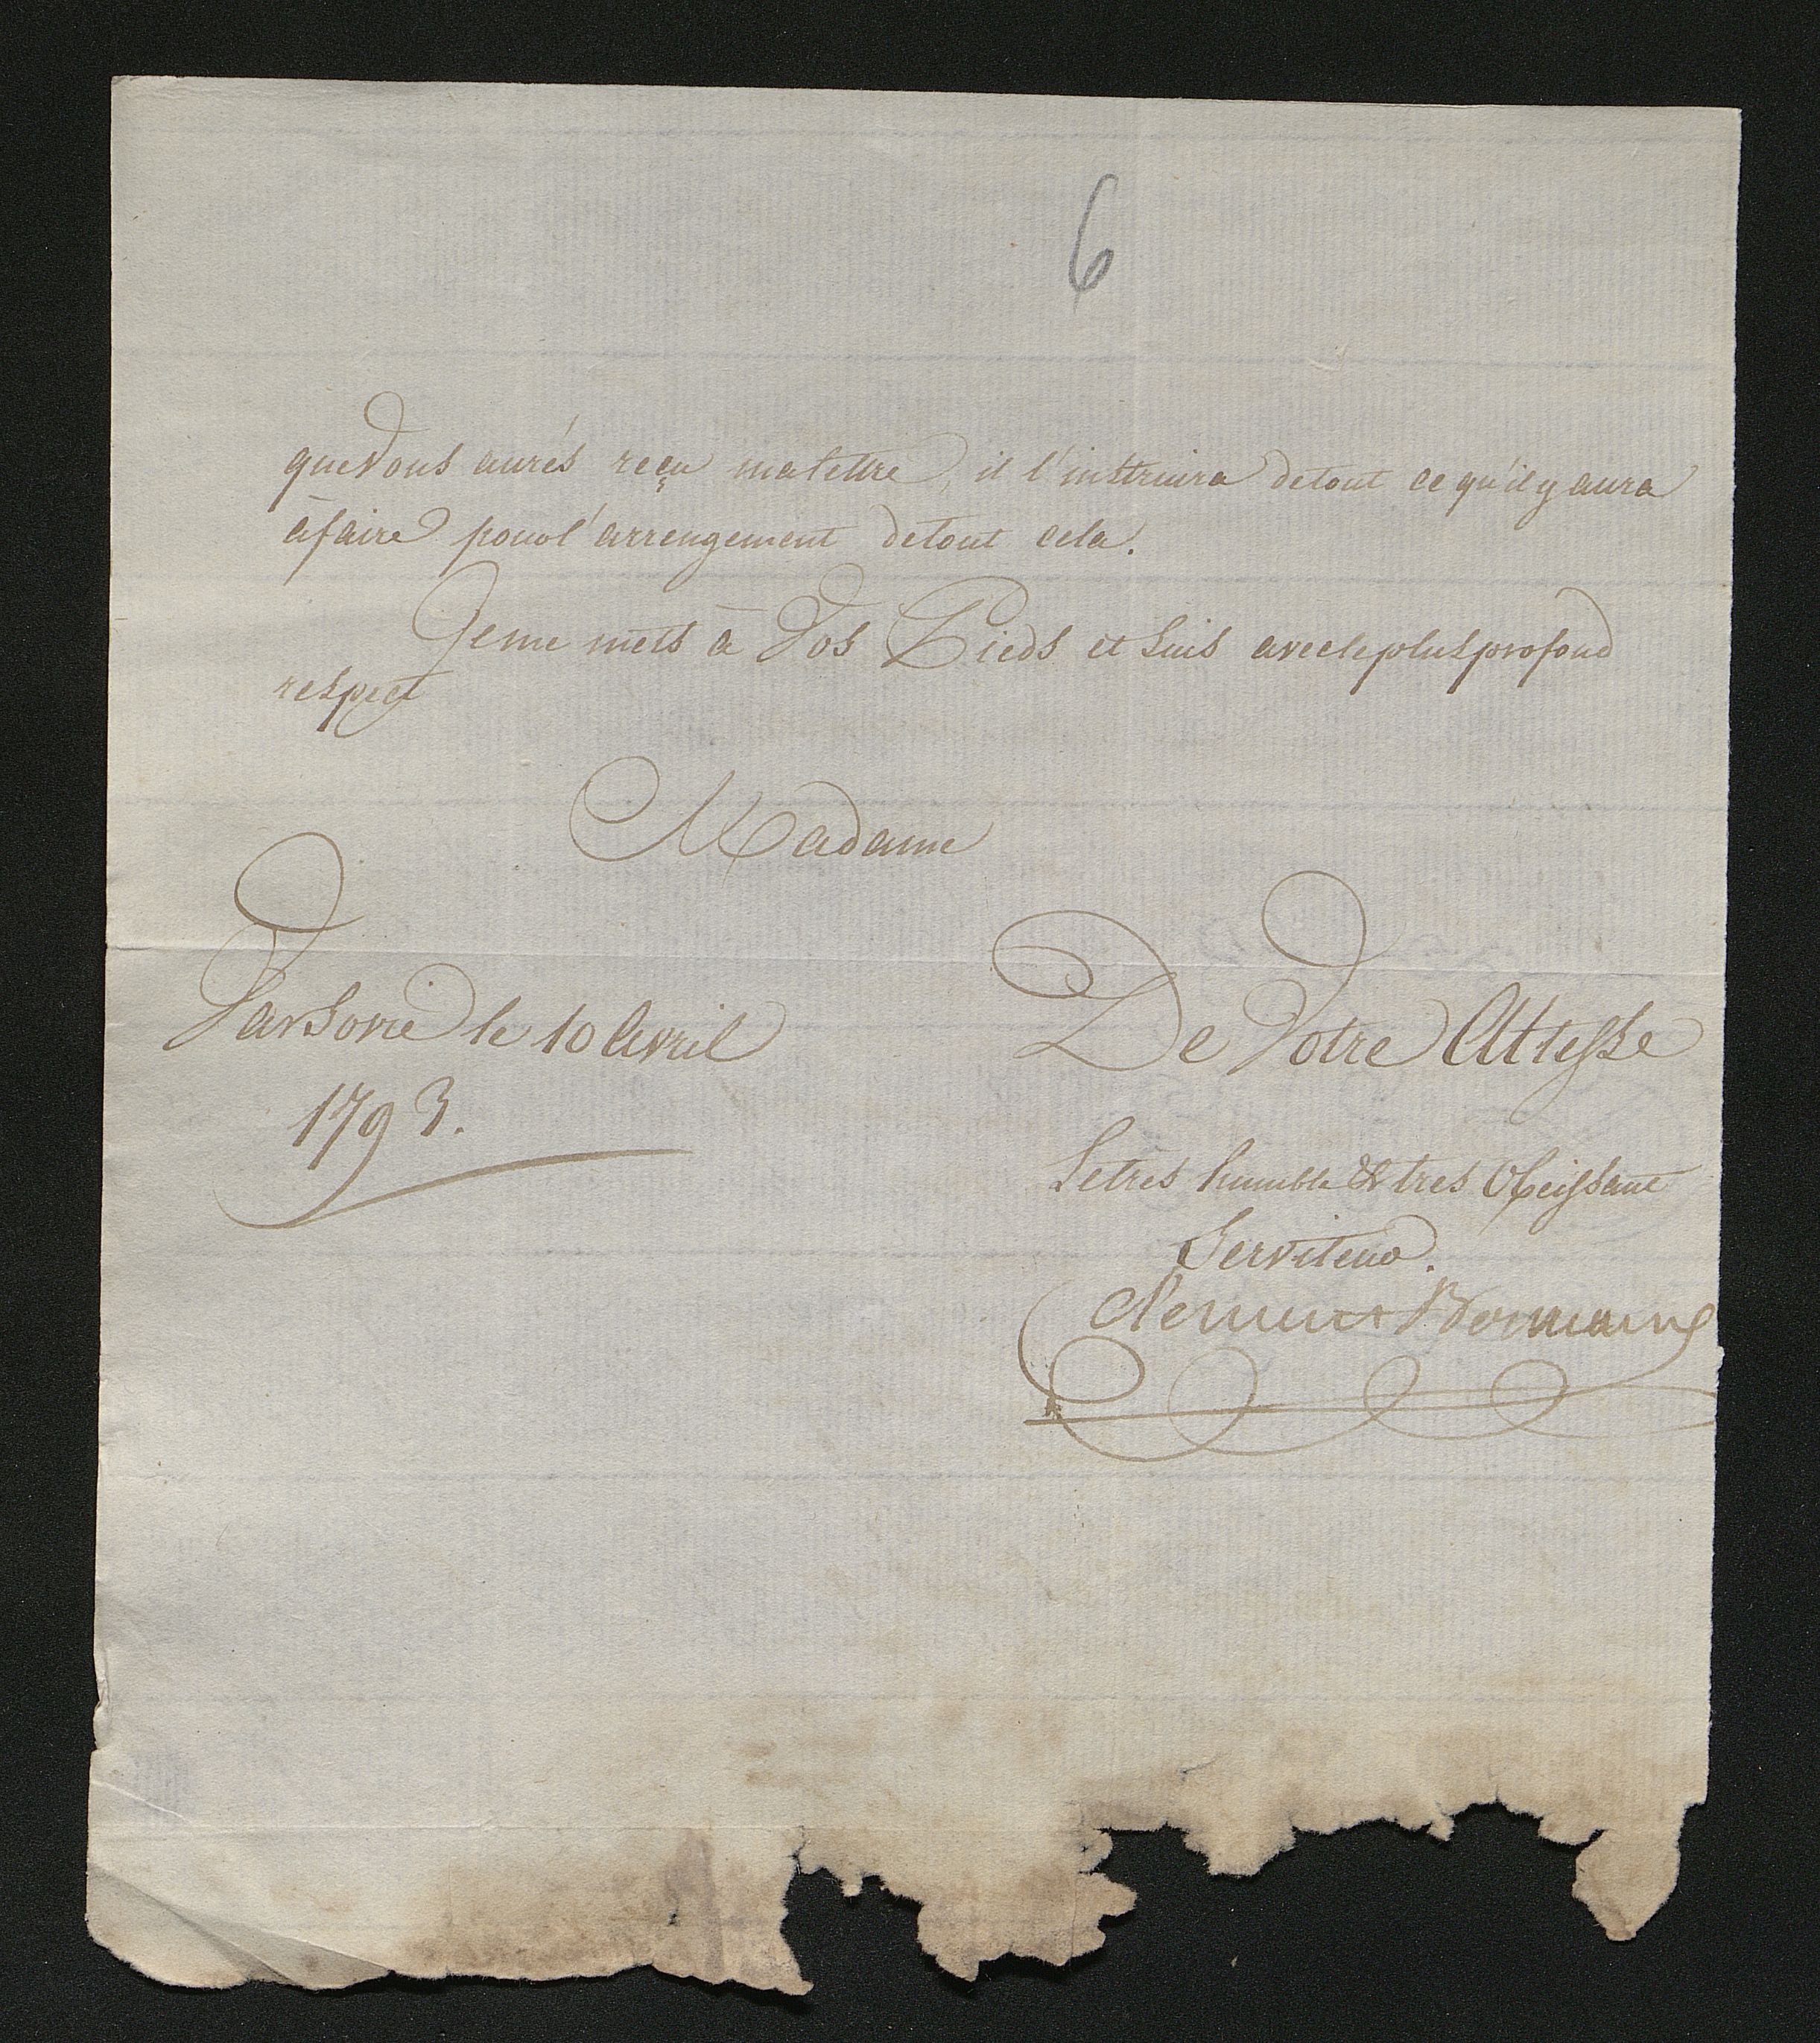 6
que Vous aurés reçu ma lettre, il l'instruira de tout ce qu'il y aura
à faire pour l'arrengement de tout cela.
Je me mets à Vos Pieds et suis avec le plus profond
respect
Madame
Varsovie le 10 Avril
1793.
De Votre Altesse
Le très humble & très Obeissant
Serviteur.
Clement Bernaux